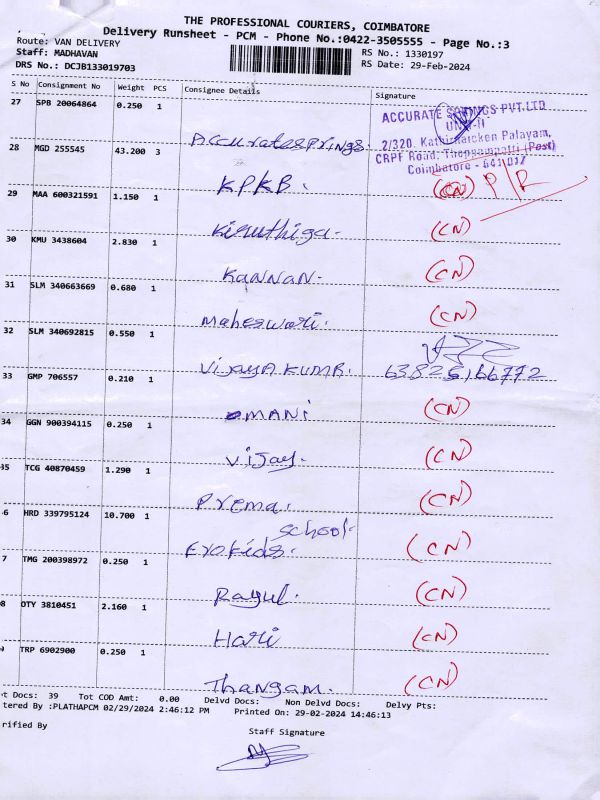 THE PROFESSIONAL COURIERS, COIMBATORE
Delivery Runsheet - PCM - Phone No.:0422-3505555 - Page No.:3
Route: VAN DELIVERY
Staff: MADHAVAN RS No.: 1330197
DRS No.: DCJB133019703 RS Date: 29-Feb-2024
S No Consignment No Weight PCS Consignee Details Signature
27 SPB 20064864 0.250 1 Accuratesprings.
ACCURATE SPRINGS PVT.LTD
UNIT-II
2/320, Kathi Naicken Palayam,
CRPF Road, (Post)
Coimbatore - 641 017
28 MGD 255545 43.200 3 KPKB. (CN) P/R
29 MAA 600321591 1.150 1 Kiruthiga. (CN)
30 KMU 3438604 2.830 1 Kannan. (CN)
31 SLM 340663669 0.680 1 Maheswari. (CN)
32 SLM 340692815 0.550 1 VijayA KUMAR. 63825,66772
33 GMP 706557 0.210 1 MANi (CN)
34 GGN 900394115 0.250 1 Vijay. (CN)
35 TCG 40870459 1.290 1 Prema. (CN)
6 HRD 339795124 10.700 1 EroKids. school. (CN)
7 TMG 200398972 0.250 1 Ragul. (CN)
8 OTY 3810451 2.160 1 Hari (CN)
9 TRP 6902900 0.250 1 Thangam. (CN)
t Docs: 39 Tot COD Amt: 0.00 Delvd Docs: Non Delvd Docs: Delvy Pts:
tered By :PLATHAPCM 02/29/2024 2:46:12 PM Printed On: 29-02-2024 14:46:13
rified By Staff Signature